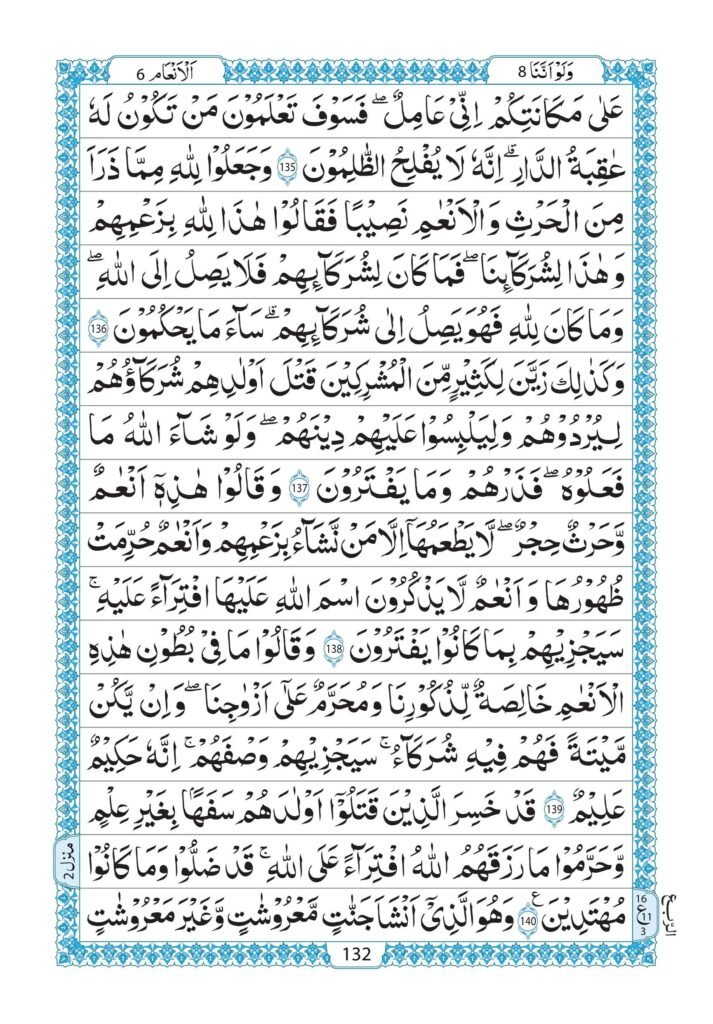 وَلَوْ اَنَّنَا 8
اَلْاَنْعَام 6
عَلٰى مَكَانَتِكُمْ اِنِّىْ عَامِلٌ ۚ فَسَوْفَ تَعْلَمُوْنَ مَنْ تَكُوْنُ لَهٗ
عٰقِبَةُ الدَّارِ ؕ اِنَّهٗ لَا يُفْلِحُ الظّٰلِمُوْنَ 135 وَجَعَلُوْا لِلّٰهِ مِمَّا ذَرَاَ
مِنَ الْحَرْثِ وَالْاَنْعٰمِ نَصِيْبًا فَقَالُوْا هٰذَا لِلّٰهِ بِزَعْمِهِمْ
وَهٰذَا لِشُرَكَآئِنَا ۖ فَمَا كَانَ لِشُرَكَآئِهِمْ فَلَا يَصِلُ اِلَى اللّٰهِ ۖ
وَمَا كَانَ لِلّٰهِ فَهُوَ يَصِلُ اِلٰى شُرَكَآئِهِمْ ؕ سَآءَ مَا يَحْكُمُوْنَ 136
وَكَذٰلِكَ زَيَّنَ لِكَثِيْرٍ مِّنَ الْمُشْرِكِيْنَ قَتْلَ اَوْلٰدِهِمْ شُرَكَآؤُهُمْ
لِيُرْدُوْهُمْ وَلِيَلْبِسُوْا عَلَيْهِمْ دِيْنَهُمْ ۖ وَلَوْ شَآءَ اللّٰهُ مَا
فَعَلُوْهُ ۖ فَذَرْهُمْ وَمَا يَفْتَرُوْنَ 137 وَقَالُوْا هٰذِهٖٓ اَنْعٰمٌ
وَّحَرْثٌ حِجْرٌ ۖ لَّا يَطْعَمُهَآ اِلَّا مَنْ نَّشَآءُ بِزَعْمِهِمْ وَاَنْعٰمٌ حُرِّمَتْ
ظُهُوْرُهَا وَاَنْعٰمٌ لَّا يَذْكُرُوْنَ اسْمَ اللّٰهِ عَلَيْهَا افْتِرَآءً عَلَيْهِ ۚ
سَيَجْزِيْهِمْ بِمَا كَانُوْا يَفْتَرُوْنَ 138 وَقَالُوْا مَا فِىْ بُطُوْنِ هٰذِهِ
الْاَنْعٰمِ خَالِصَةٌ لِّذُكُوْرِنَا وَمُحَرَّمٌ عَلٰٓى اَزْوٰجِنَا ۖ وَاِنْ يَّكُنْ
مَّيْتَةً فَهُمْ فِيْهِ شُرَكَآءُ ۚ سَيَجْزِيْهِمْ وَصْفَهُمْ ۚ اِنَّهٗ حَكِيْمٌ
عَلِيْمٌ 139 قَدْ خَسِرَ الَّذِيْنَ قَتَلُوْٓا اَوْلٰدَهُمْ سَفَهًا بِغَيْرِ عِلْمٍ
وَّحَرَّمُوْا مَا رَزَقَهُمُ اللّٰهُ افْتِرَآءً عَلَى اللّٰهِ ۚ قَدْ ضَلُّوْا وَمَا كَانُوْا
مُهْتَدِيْنَ 140 وَهُوَ الَّذِىْٓ اَنْشَاَ جَنّٰتٍ مَّعْرُوْشٰتٍ وَّغَيْرَ مَعْرُوْشٰتٍ
منزل 2
16
ع 11
3
الربع
132